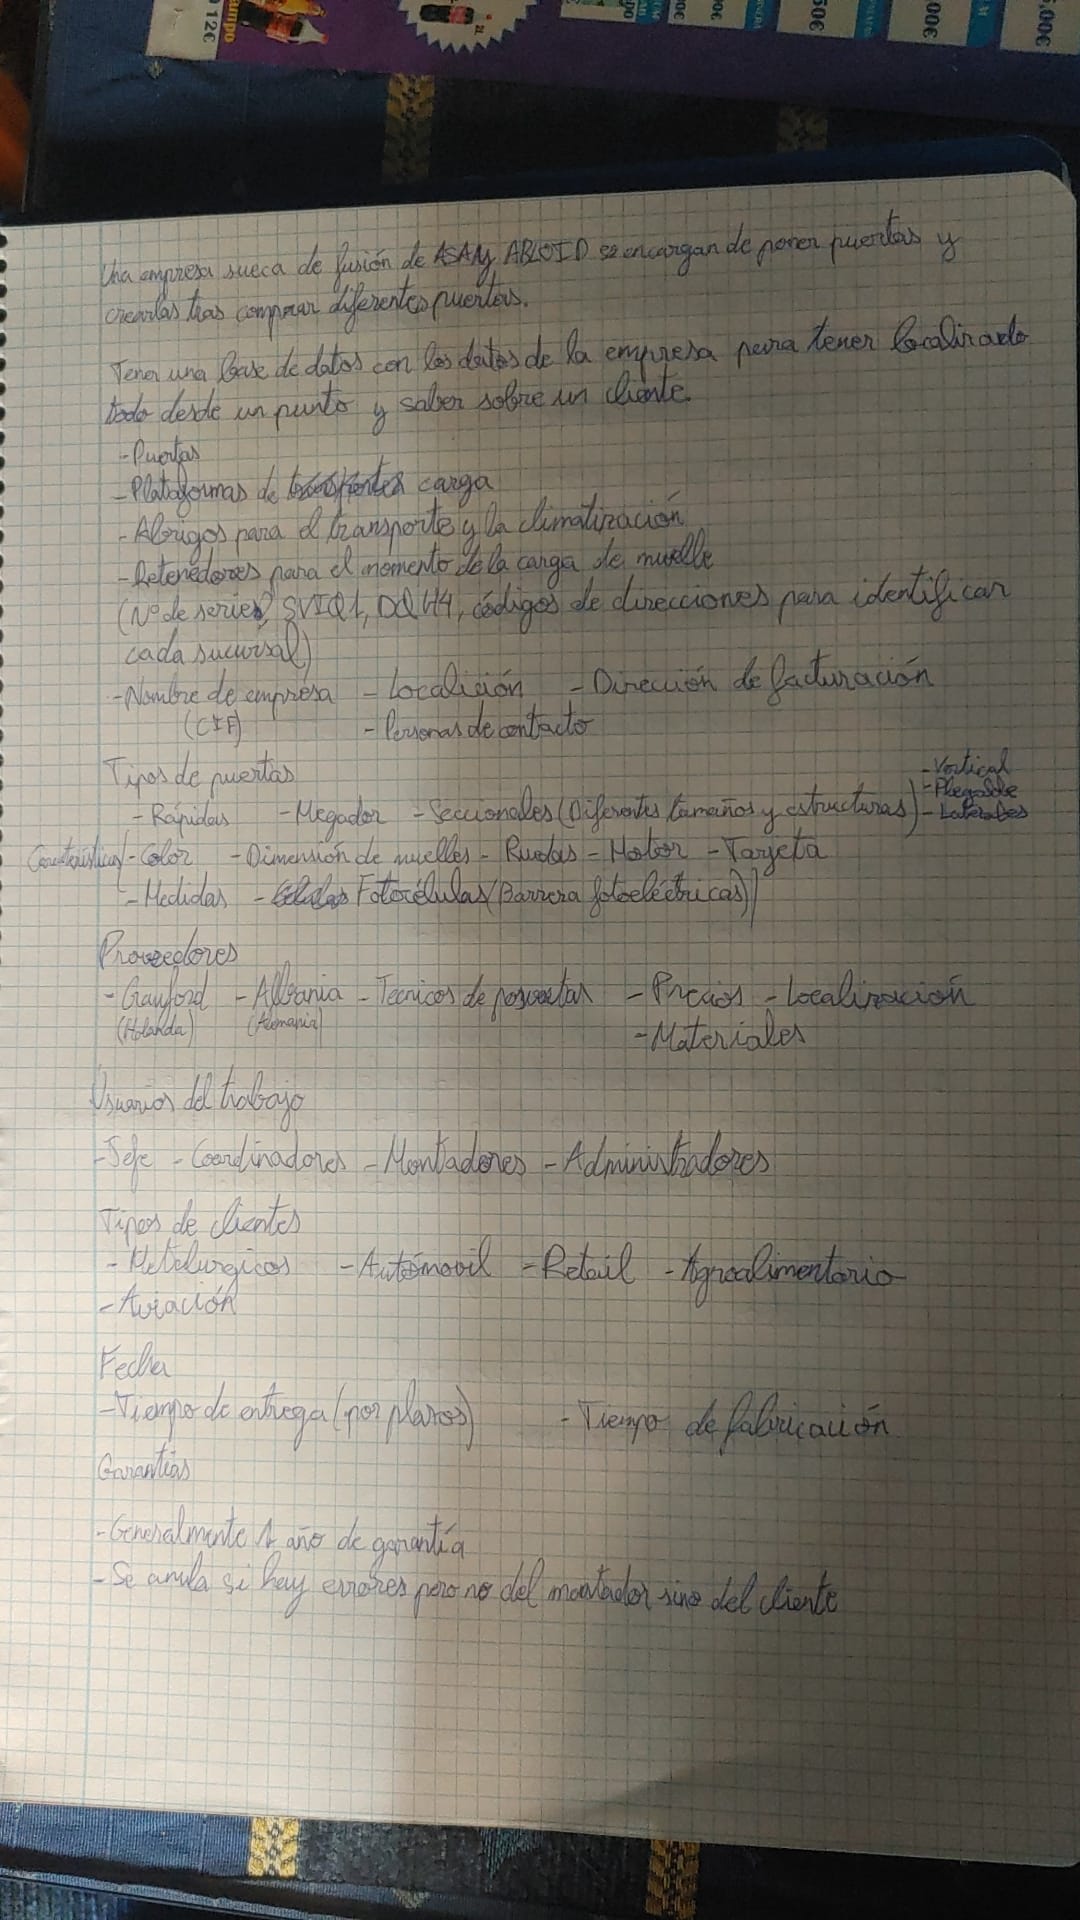 12€
ampo
50€
,00€
5,00€
Una empresa sueca de fusión de ASA y ABLOID se encargan de poner puertas y
crearlas tras comprar diferentes puertas.
Tener una base de datos con los datos de la empresa para tener localizado
todo desde un punto y saber sobre un cliente.
- Puertas
- Plataformas de carga
- Abrigos para el transporte y la climatización
- Retenedores para el momento de la carga de muelle
(Nº de series, SVIQ1, DQH4, códigos de direcciones para identificar
cada sucursal)
- Nombre de empresa - Localición - Dirección de facturación
(CIF) - Personas de contacto
Tipos de puertas
- Rápidas - Megador - Seccionales (Diferentes tamaños y estructuras) - Vertical
- Plegable
- Laterales
Características - Color - Dimensión de muelles - Ruedas - Motor - Tarjeta
- Medidas - Fotocélulas (Barrera fotoeléctricas)
Proveedores
- Crawford - Albania - Tecnicos de - Precios - Localización
(Holanda) (Alemania) - Materiales
Usuarios del trabajo
- Jefe - Coordinadores - Montadores - Administradores
Tipos de clientes
- Metalurgicos - Automovil - Retail - Agroalimentario
- Aviación
Fecha
- Tiempo de entrega (por plazos) - Tiempo de fabricación
Garantías
- Generalmente 1 año de garantía
- Se anula si hay errores pero no del montador sino del cliente